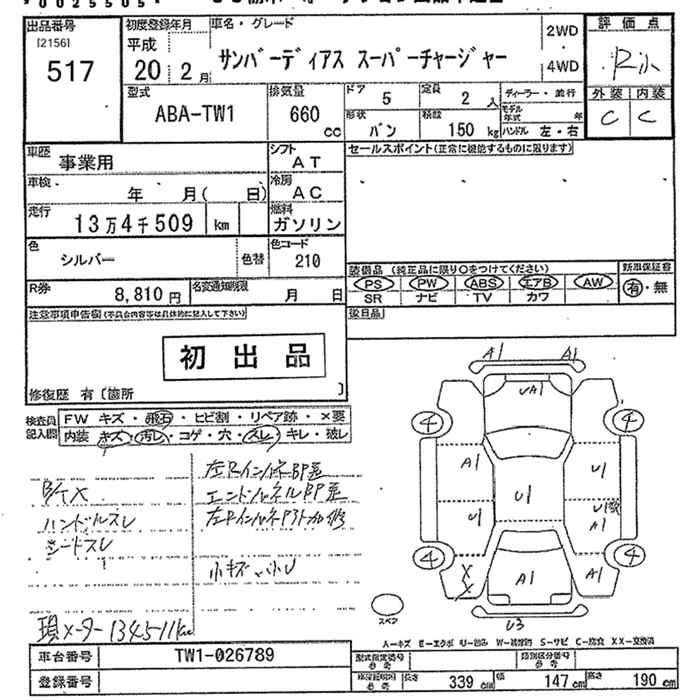 出品番号 初度登録年月 車名・グレード 2WD 評価点
[2156] 平成 サンバーディアス スーパーチャージャー
517 20 2月 4WD
型式 排気量 ドア 5 定員 2人 ディーラー・並行 外装 内装
ABA-TW1 660 cc 形状 バン 積載 150 kg モデル年式 年 C C
ハンドル 左・右
車歴 事業用 シフト AT セールスポイント(正常に機能するものに限ります)
車検 年 月( 日) 冷房 AC
走行 13万4千509 km 燃料 ガソリン
色 シルバー 色替 色コード 210
装備品 (純正品に限り○をつけてください) 新車保証書
R券 8,810円 名変通知期限 月 日 PS PW ABS エアB AW 有・無
SR ナビ TV カワ
注意事項申告欄(不具合内容等は具体的に記入して下さい) 後日品
初出品
修復歴 有〔箇所 〕
検査員記入欄 FW キズ・飛石・ヒビ割・リペア跡・×要
内装 キズ・汚レ・コゲ・穴・スレ・キレ・破レ
ハンドルスレ
シートスレ
小キズ
A1 A1
UA1
4 4
A1 U1 U1
U1 A1
4 4
X X A1 A1
U3
スペア
現メーター134511km
A-キズ E-エクボ U-凹み W-補修跡 S-サビ C-腐食 XX-交換済
車台番号 TW1-026789 型式指定番号 参考 類別区分番号 参考
登録番号 長さ 339 cm 幅 147 cm 高さ 190 cm